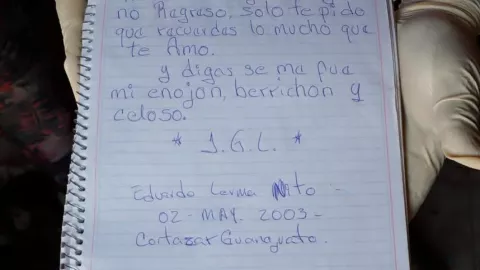 no Regreso, solo te pido
que recuerdes lo mucho que
te Amo.
y digas se me fue
mi enojon, berrichon y
celoso.
* J.G.L. *
Eduardo Lerma Nito -
02 - MAY. 2003 -
Cortazar Guanajuato.